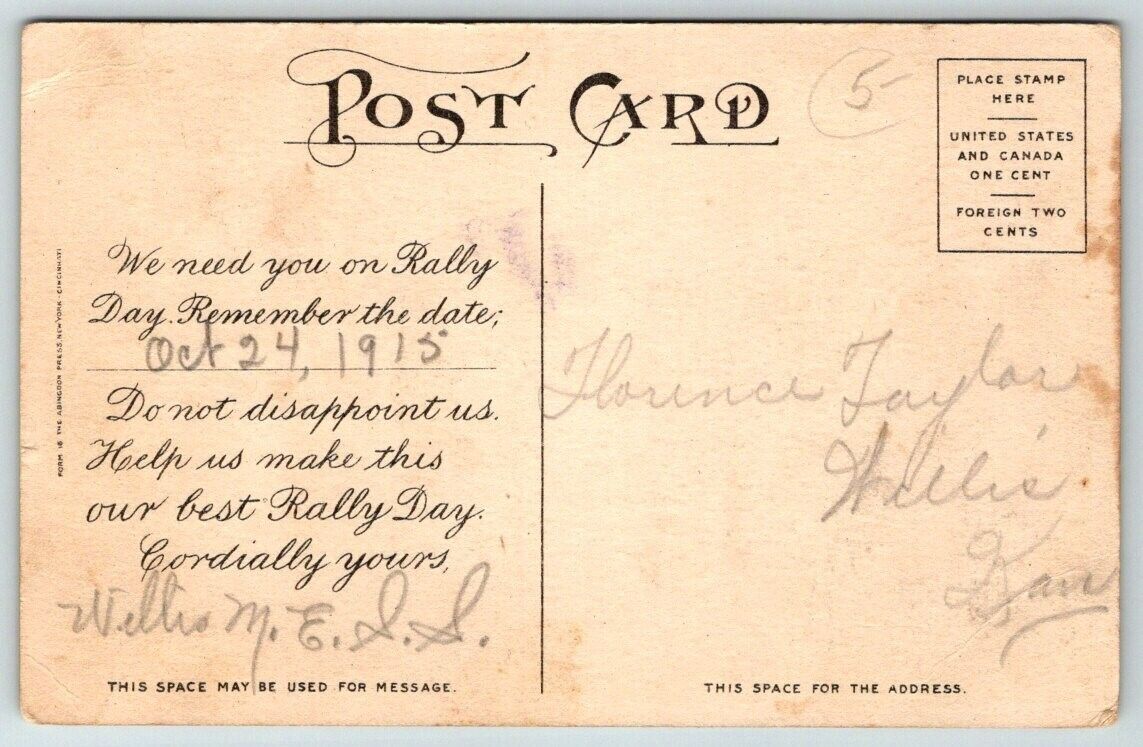 POST CARD
5-
PLACE STAMP
HERE
UNITED STATES
AND CANADA
ONE CENT
FOREIGN TWO
CENTS
FORM 16 THE ABINGDON PRESS, NEW YORK - CINCINNATI
We need you on Rally
Day. Remember the date;
Oct 24, 1915
Do not disappoint us.
Help us make this
our best Rally Day.
Cordially yours,
Willis M. E. S. S.
THIS SPACE MAY BE USED FOR MESSAGE.
Florence Taylor
Willis
Kan
THIS SPACE FOR THE ADDRESS.